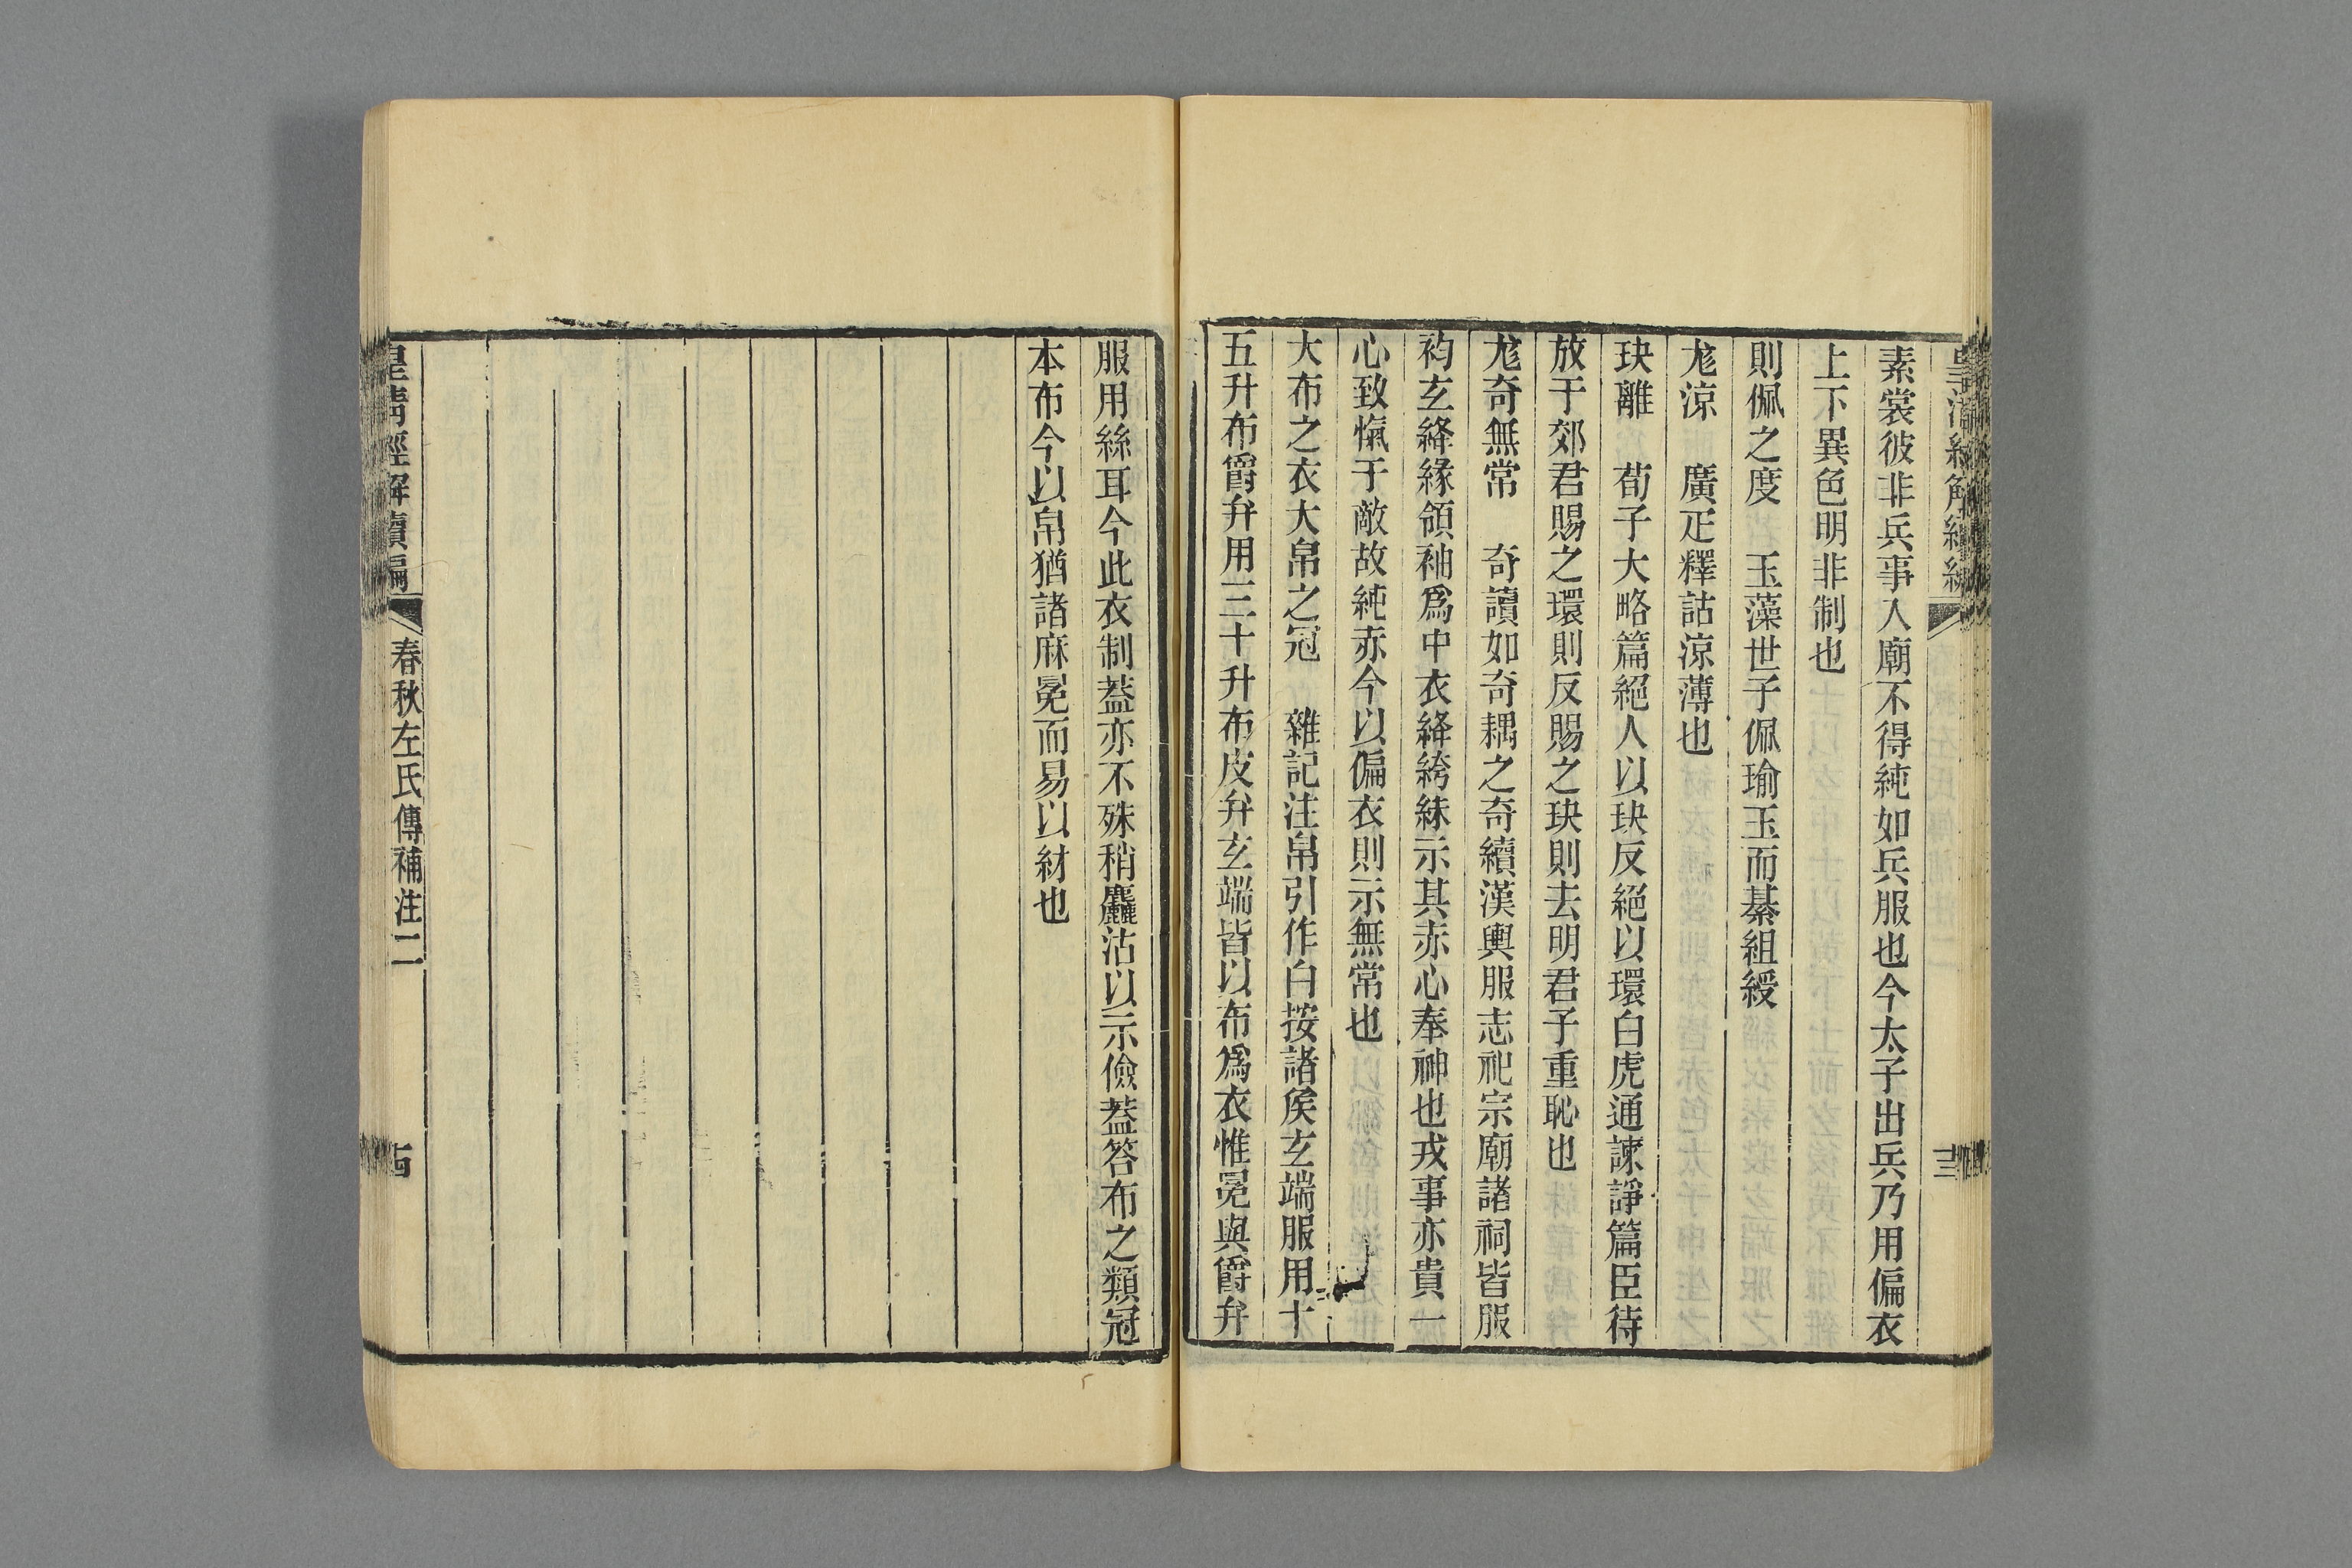 素裳彼非兵事入廟不得純如兵服也今太子出兵乃用偏衣
上下異色明非制也
則佩之度　玉藻世子佩瑜玉而綦組綬
尨涼　廣疋釋詁涼薄也
玦離　荀子大略篇絕人以玦反絕以環白虎通諫諍篇臣待
放于郊君賜之環則反賜之玦則去明君子重恥也
尨奇無常　奇讀如奇耦之奇續漢輿服志祀宗廟諸祠皆服
袀玄絳緣領袖爲中衣絳絝絑示其赤心奉神也戎事亦貴一
心致愾于敵故純赤今以偏衣則示無常也
大布之衣大帛之冠　雜記注帛引作白按諸矦玄端服用十
五升布爵弁用三十升布皮弁玄端皆以布爲衣惟冕與爵弁
服用絲耳今此衣制葢亦不殊稍麤沽以示儉葢答布之類冠
本布今以帛猶諸麻冕而易以紂也
皇清經解續編
春秋左氏傳補注二